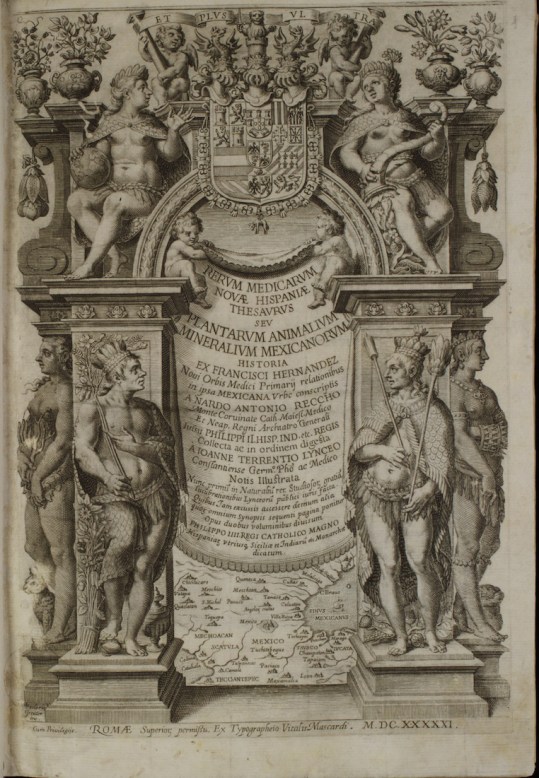 ET PLVS VL TRA
RERVM MEDICARVM
NOVÆ HISPANIÆ
THESAVRVS
SEV
PLANTARVM ANIMALIVM
MINERALIVM MEXICANORVM
HISTORIA
EX FRANCISCI HERNANDEZ
Noui Orbis Medici Primarij relationibus
in ipsa MEXICANA Vrbe conscriptis
A NARDO ANTONIO RECCHO
Monte Coruinate Cath. Maiest. Medico
Et Neap. Regni Archiatro Generali
Iussu PHILIPPI II. HISP. IND. etc. REGIS
Collecta ac in ordinem digesta
A IOANNE TERRENTIO LYNCEO
Constantiense Germ. Phõ ac Medico
Notis Illustrata
Nunc primũ in Naturaliũ rer. Studiosor. gratiã
lucubrationibus Lynceorũ publici iuris facta.
Quibus Iam excussis accessere demum alia
quor. omnium Synopsis sequenti pagina ponitur
Opus duobus voluminibus diuisum
PHILIPPO IIII REGI CATHOLICO MAGNO
Hispaniar. vtriusq; Siciliæ et Indiarũ etc. Monarchæ
dicatum
MECHOACAN
MEXICO
Cum Priuilegijs
ROMÆ Superior, permissu. Ex Typographeio Vitalis Mascardi. M.DC.XXXXXI.